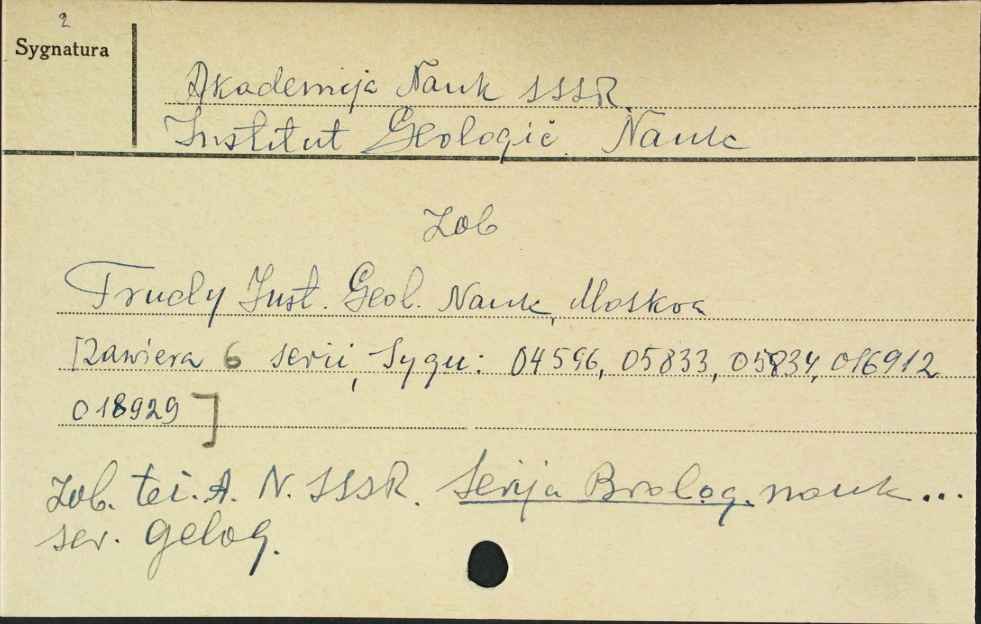 2
Sygnatura
Akademija Nauk SSSR
Institut Geologič. Nauk
Zob
Trudy Inst. Geol. Nauk, Moskva
[Zawiera 6 serii, Sygn: 04596, 05833, 05834, 016912
018929]
Zob. też. A. N. SSSR. Serija Biolog. nauk...
ser. gelog.